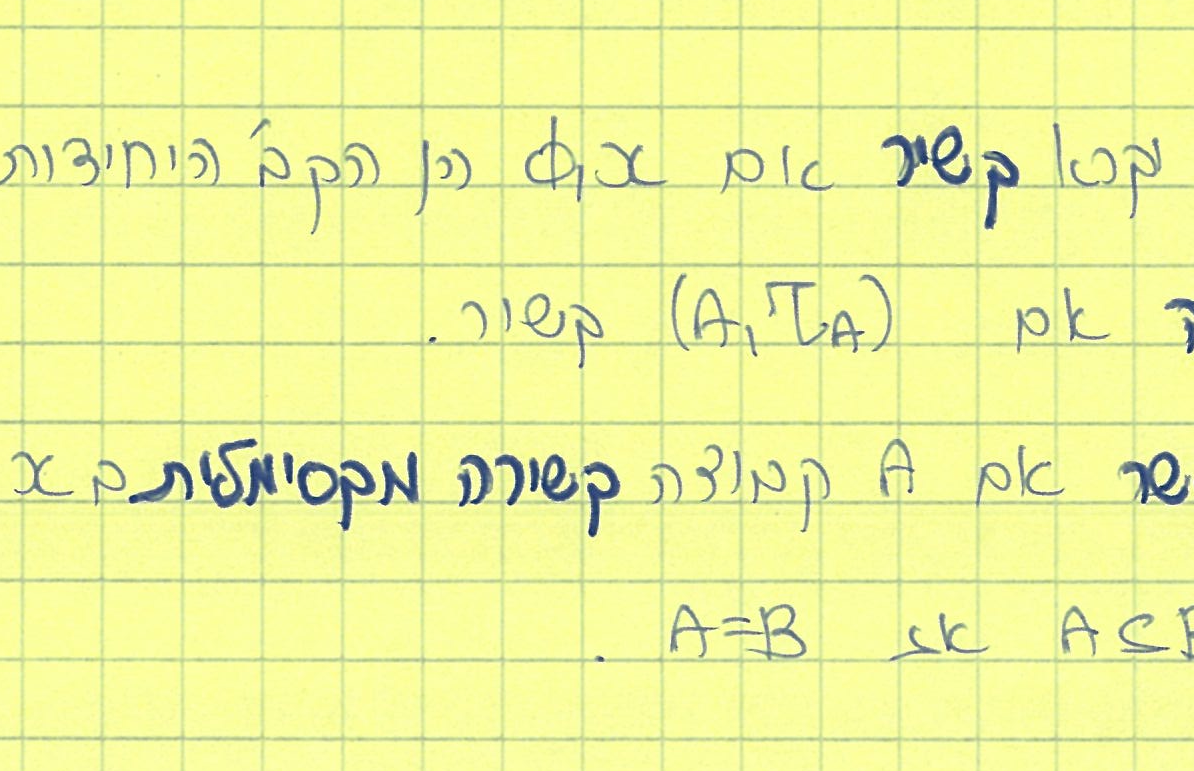 יקרא קשיר אם X,ϕ הן הקב' היחידות
אם (A,τ_A) קשור.
אם A קבוצה קשורה מקסימלית ב X
A⊆B אז A=B.